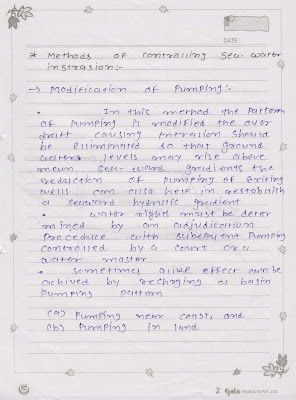 DATE
* Methods of controlling Sea-water
instrasion:-
→ Modification of Pumping:-
• In this method the pattern
of pumping is modified the over
draft causing interation should
be eliminated so that ground
water levels may rise above
mean sea-ward gradients the
reduction of pumping of exiting
wells can also help in restablish
a seaward hydrolic gradient.
• water rights must be deter
mined by an adjudication
procedure with subsequent pumping
controlled by a court or a
water master.
• sometimes alike effect can be
achived by recharging or basin
pumping pattern
(a) pumping near coast, and
(b) pumping in land
2 gala PRODUCTS PVT. LTD.